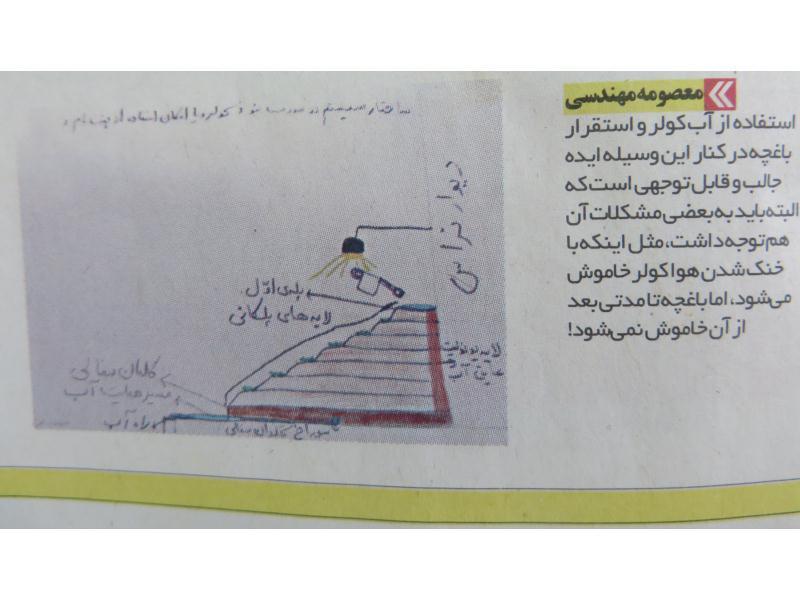 معصومه مهندسی
استفاده از آب کولر و استقرار
باغچه در کنار این وسیله ایده
جالب و قابل توجهی است که
البته باید به بعضی مشکلات آن
هم توجه داشت، مثل اینکه با
خنک شدن هوا کولر خاموش
می‌شود، اما باغچه تا مدتی بعد
از آن خاموش نمی‌شود!
ساختار سیستم در صورت
دیوار تراس
پله‌ی اوّل
لایه های پلکانی
عایق آب
گلدان سفالی
مسیر هدایت آب
راه آب
سوراخ گلدان سفالی